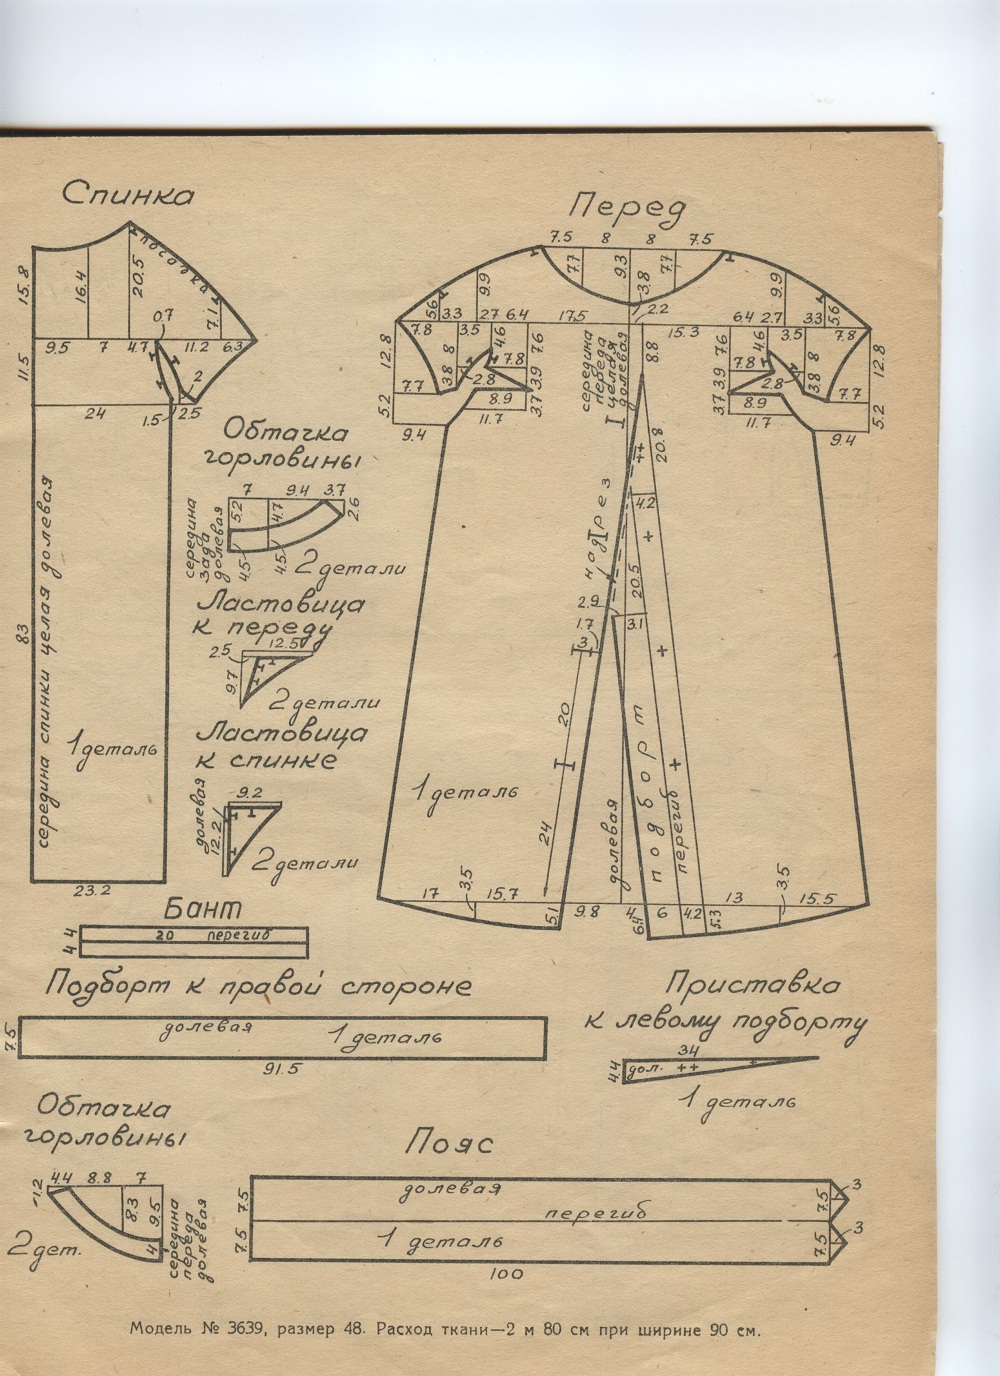 Спинка
Перед
15.8
16.4
20.5
посадка
7.1
0.7
9.5 7 4.7 11.2 6.3
11.5
2
24
1.5 2.5
середина спинки целая долевая
83
1 деталь
23.2
7.5 8 8 7.5
7.7 9.3 3.8 7.7
9.9 9.9
5.6 3.3 2.7 6.4 17.5 2.2 15.3 6.4 2.7 3.3 5.6
7.8 3.5 4.6 7.6 8.8 7.6 4.6 3.5 7.8
12.8 3.8 8 7.8 7.8 3.8 8 12.8
2.8 3.9 3.9 2.8
7.7 8.9 3.7 3.7 8.9 7.7
5.2 11.7 11.7 5.2
9.4 9.4
середина
переда
целая
долевая
20.8
4.2
надрез
20.5
2.9
3.1
1.7
3
20
24
1 деталь
долевая
подборт
перегиб
17 3.5 15.7 5.1 9.8 4 6 4.2 5.3 13 3.5 15.5
6.4
Обтачка
горловины
7 9.4 3.7
5.2 4.7 2.6
4.5 4.5
середина
зада
долевая
2 детали
Ластовица
к переду
2.5 12.5
9.7
2 детали
Ластовица
к спинке
9.2
долевая
12.2
2 детали
Бант
4 4
20 перегиб
Подборт к правой стороне
7.5
долевая 1 деталь
91.5
Приставка
к левому подборту
34
4.4
дол.
1 деталь
Обтачка
горловины
1.2 4.4 8.8 7
8.3 9.5
4
середина
переда
долевая
2 дет.
Пояс
7.5 долевая 7.5 3
перегиб
7.5 1 деталь 7.5 3
100
Модель № 3639, размер 48. Расход ткани—2 м 80 см при ширине 90 см.